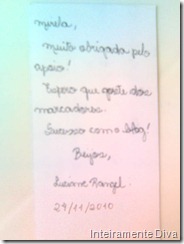 Mirela,
muito obrigada pelo
apoio!
Espero que goste dos
marcadores.
Sucesso com o blog!
Beijos,
Luciane Rangel.
29/11/2010
Inteiramente Diva